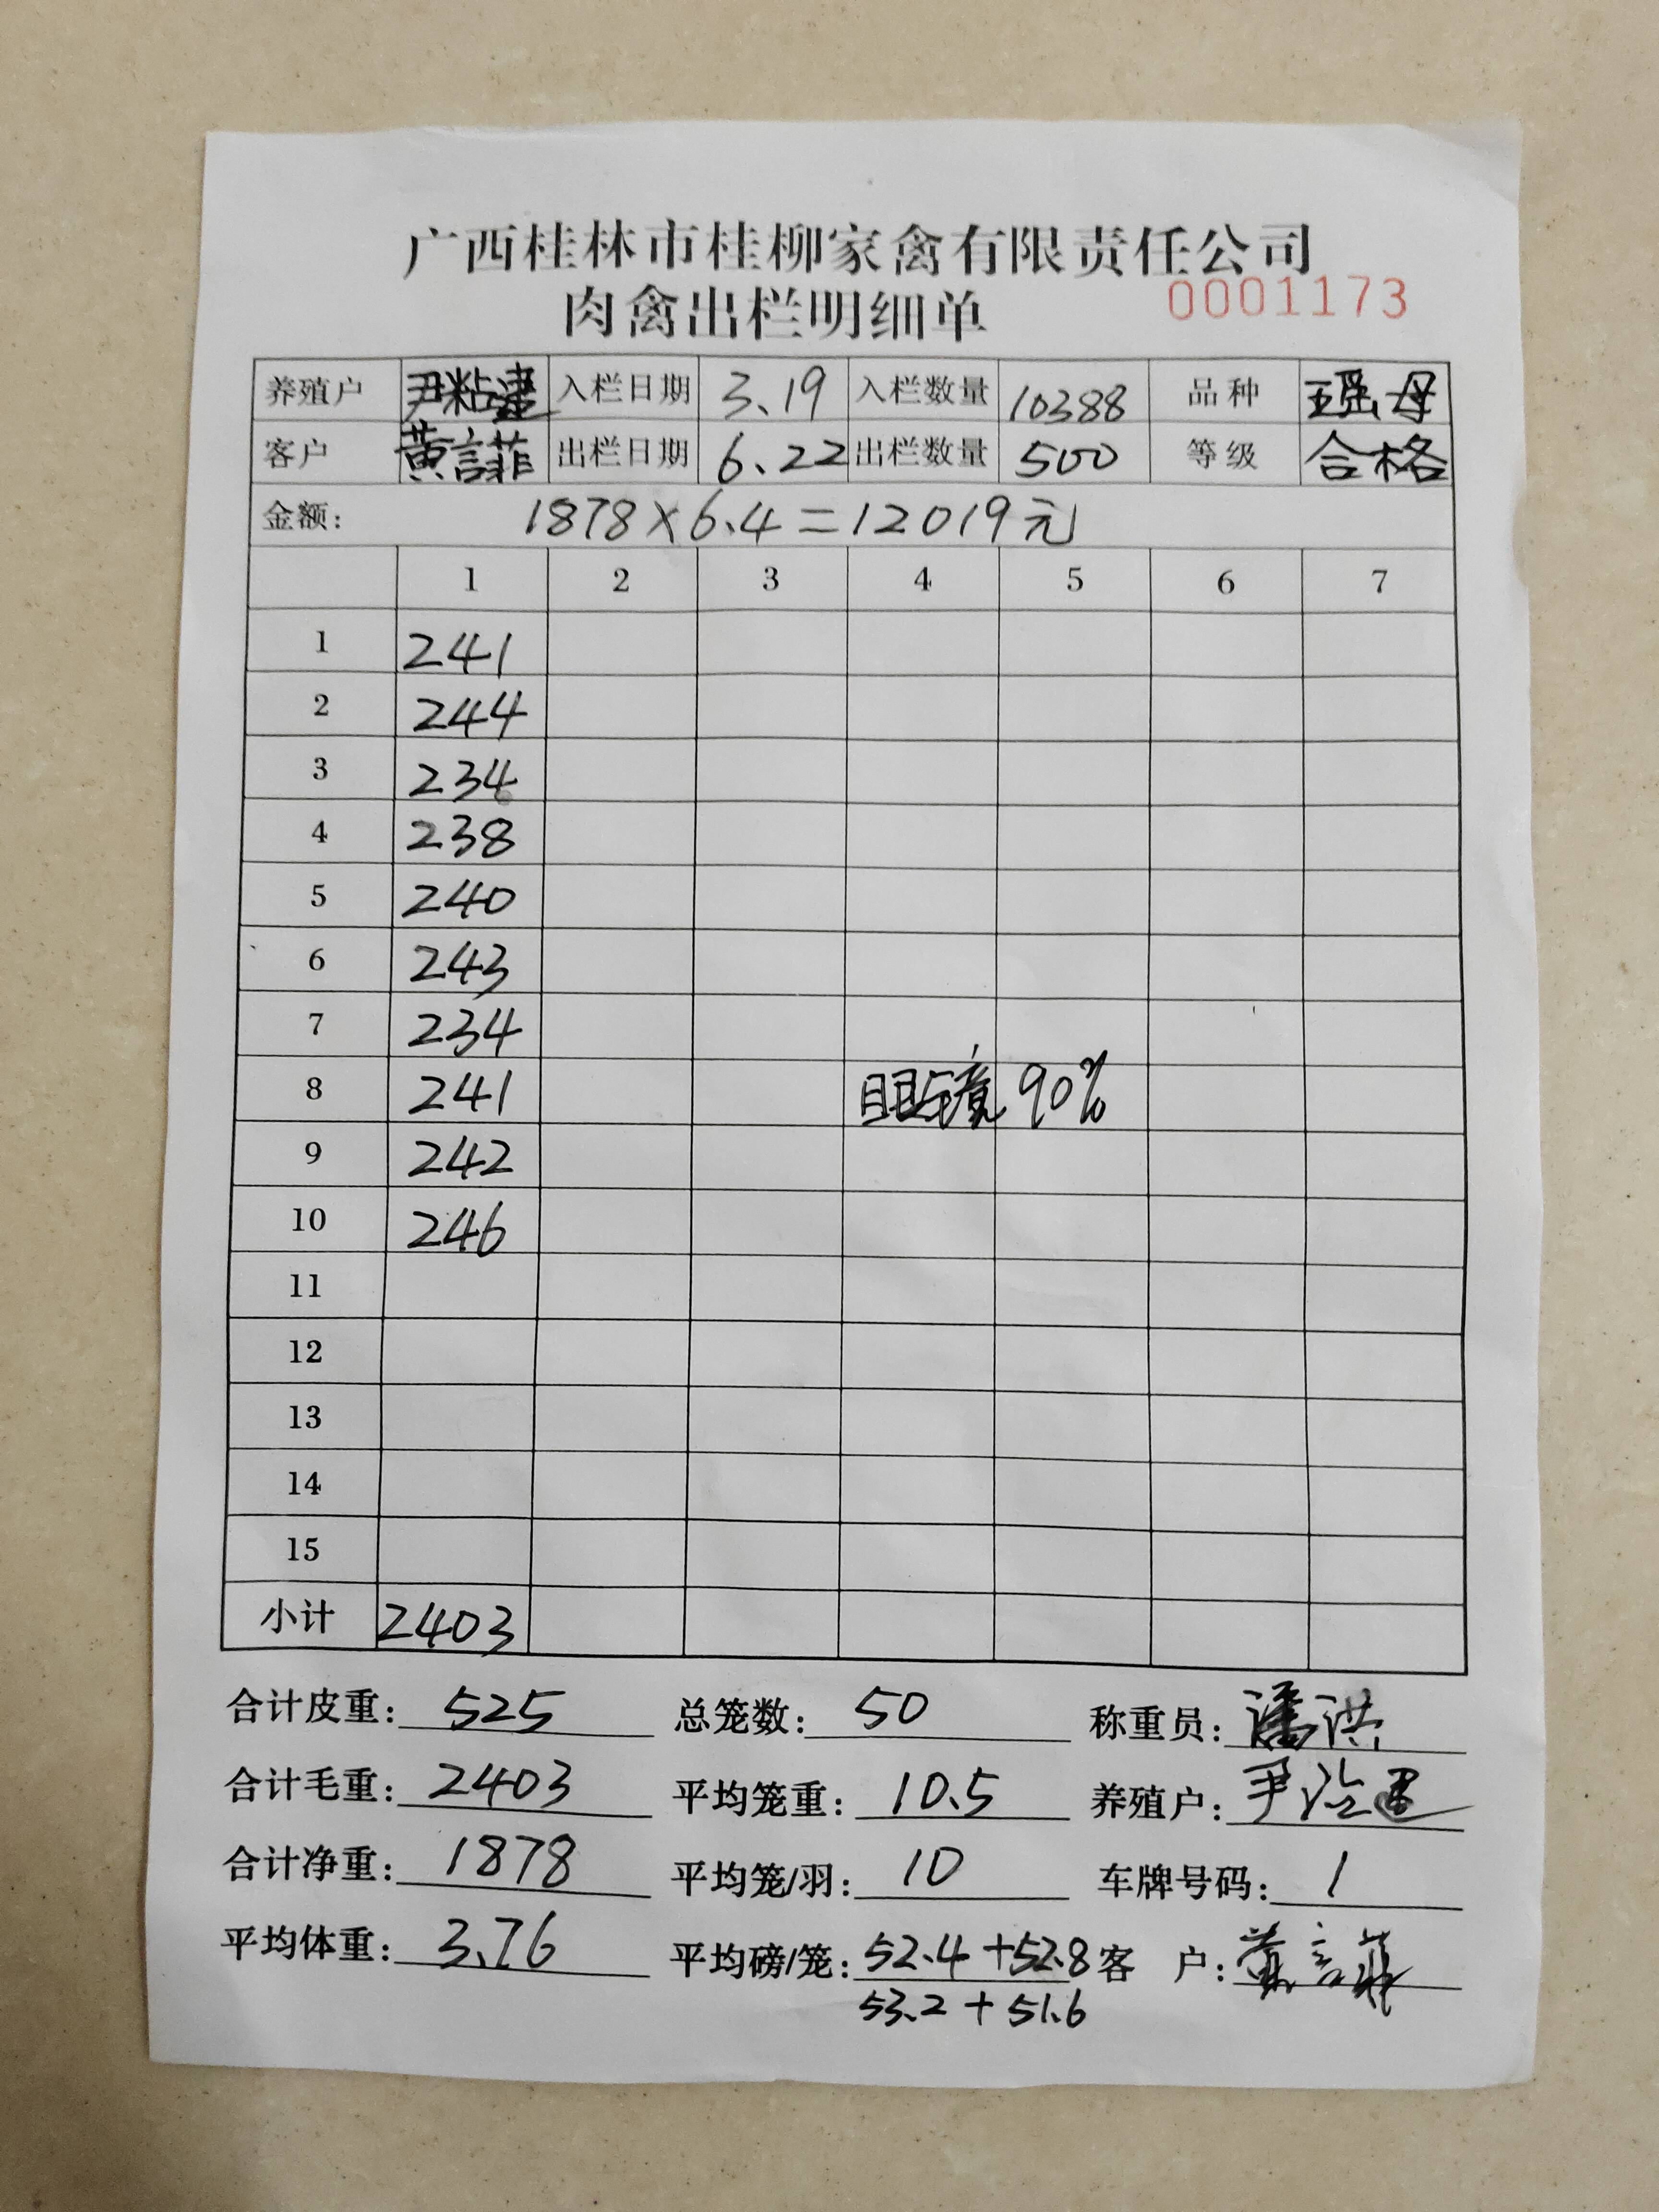 广西桂林市桂柳家禽有限责任公司
肉禽出栏明细单 0001173
养殖户 尹粘 入栏日期 3.19 入栏数量 10388 品种 瑶母
客户 黄言菲 出栏日期 6.22 出栏数量 500 等级 合格
金额: 1878×6.4=12019元
1 2 3 4 5 6 7
1 241
2 244
3 234
4 238
5 240
6 243
7 234
8 241 眼镜90%
9 242
10 246
11
12
13
14
15
小计 2403
合计皮重: 525 总笼数: 50 称重员: 潘洪
合计毛重: 2403 平均笼重: 10.5 养殖户: 尹
合计净重: 1878 平均笼/羽: 10 车牌号码: 1
平均体重: 3.76 平均磅/笼: 52.4+52.8 客 户: 黄言菲
53.2+51.6